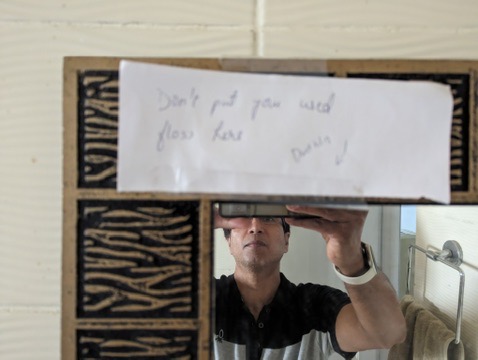 Don't put your used
floss here
Down ↓